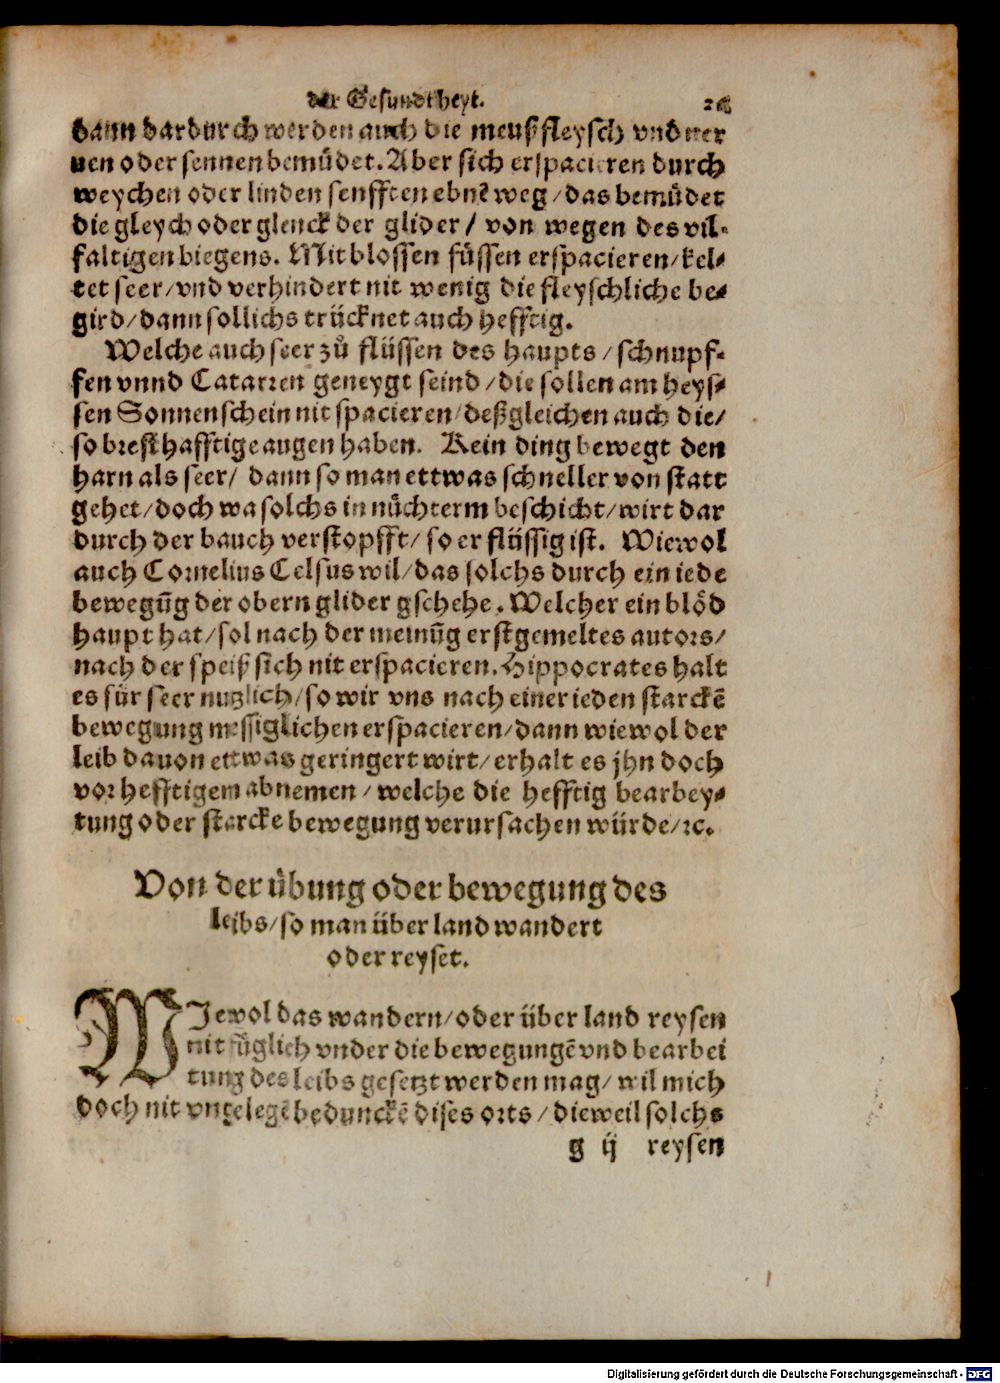 der Gesundtheyt. 26
dann dardurch werden auch die meußfleysch vnd ner
uen oder sennen bemůdet. Aber sich erspacieren durch
weychen oder linden senfften ebnē weg / das bemůdet
die gleych oder glenck der glider / von wegen des vil-
faltigen biegens. Mit blossen füssen erspacieren / kel-
tet seer / vnd verhindert nit wenig die fleyschliche be-
gird / dann sollichs trücknet auch hefftig.
Welche auch seer zů flüssen des haupts / schnupf-
fen vnnd Catarren geneygt seind / die sollen am heys-
sen Sonnenschein nit spacieren / deßgleichen auch die /
so bresthafftige augen haben. Kein ding bewegt den
harn als seer / dann so man ettwas schneller von statt
gehet / doch wa solchs in nüchterm beschicht / wirt dar
durch der bauch verstopfft / so er flüssig ist. Wiewol
auch Cornelius Celsus wil / das solchs durch ein iede
bewegūg der obern glider gschehe. Welcher ein blöd
haupt hat / sol nach der meinūg erstgemeltes autors /
nach der speiß sich nit erspacieren. Hippocrates halt
es für seer nutzlich / so wir vns nach einer ieden starckē
bewegung messiglichen erspacieren / dann wiewol der
leib dauon ettwas geringert wirt / erhalt es jhn doch
vor hefftigem abnemen / welche die hefftig bearbey-
tung oder starcke bewegung verursachen würde / ꝛc.
Von der übung oder bewegung des
leibs / so man über land wandert
oder reyset.
WJewol das wandern / oder über land reysen
nit füglich vnder die bewegungē vnd bearbei
tung des leibs gesetzt werden mag / wil mich
doch nit vngelegē beduncke̅ dises orts / dieweil solchs
g ij reysen
Digitalisierung gefördert durch die Deutsche Forschungsgemeinschaft - DFG